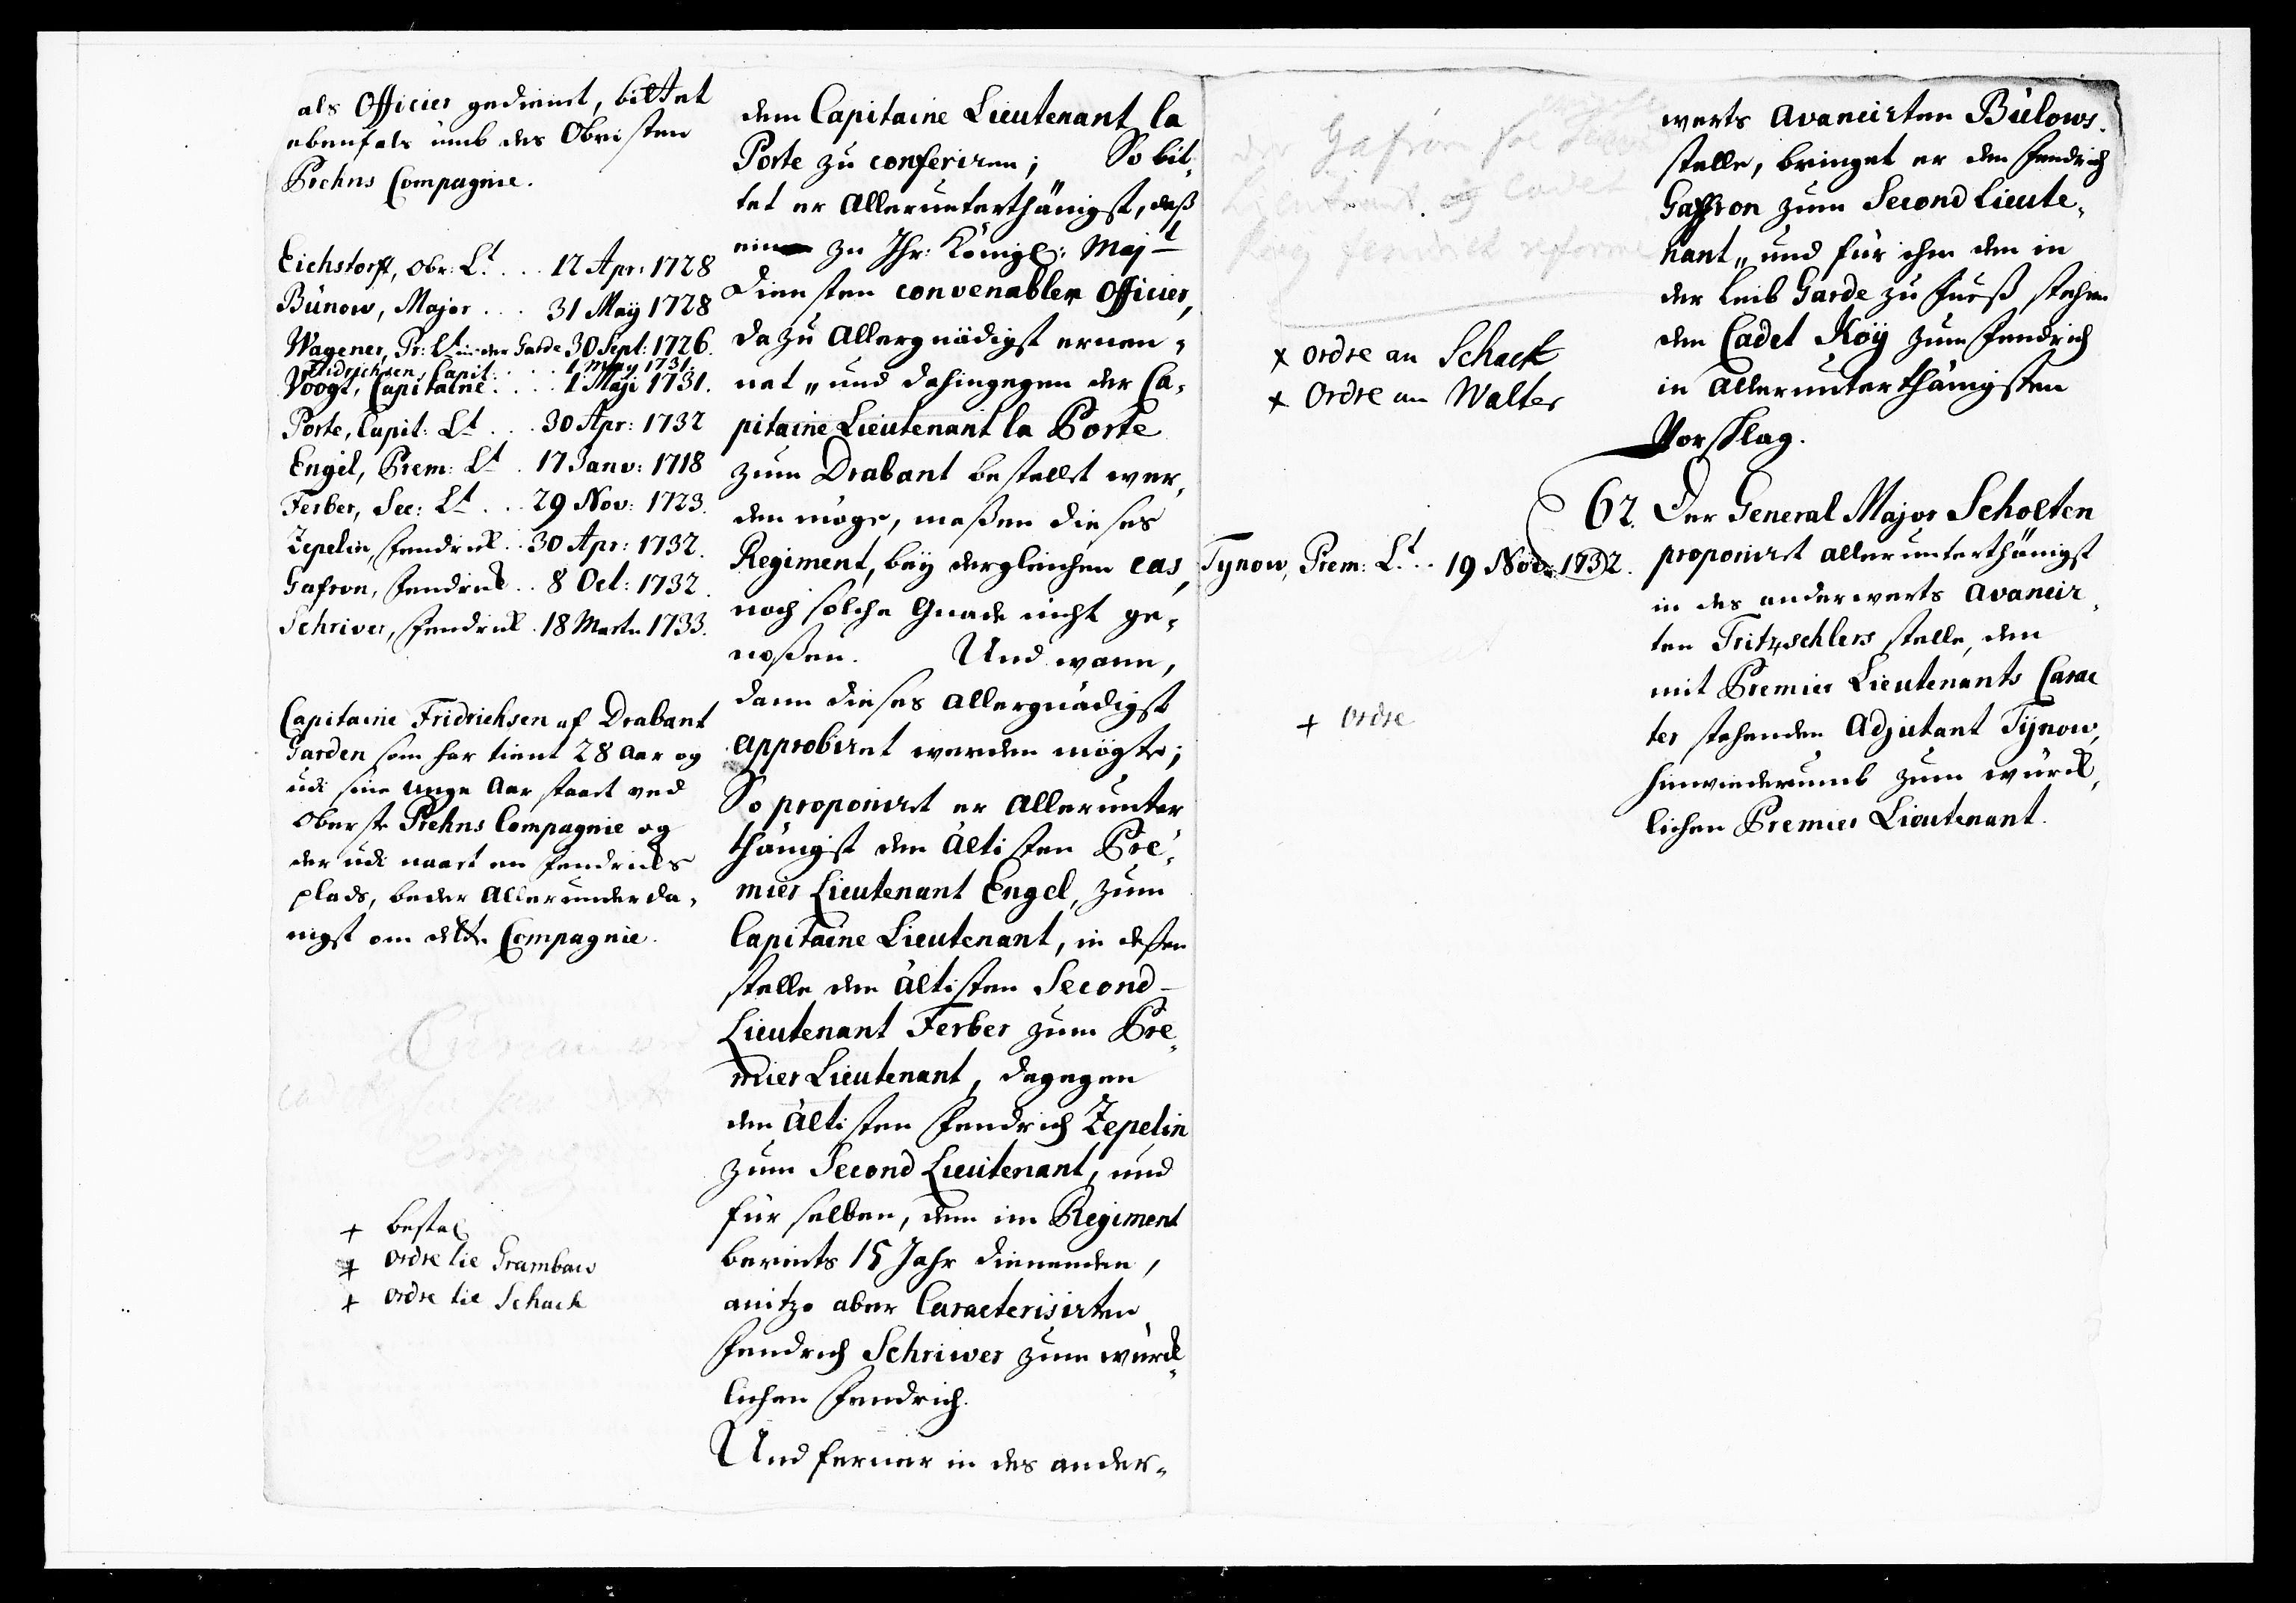 als Officier gedienet, bittet
ebenfals umb des Obristen
Prehns Compagnie.
Eichstorff, Obr: Lt. . . . 12 Apr: 1728
Bünow, Major . . . 31 Maÿ 1728
Wagener, Pr: Lt in der Garde 30 Sept: 1726.
Fridrichsen, Capit . . . . 1. May 1731.
Voogt, Capitaine . . . . 1 Maji 1731.
Porte, Capit: Lt . . . 30 Apr: 1732
Engel, Prem: Lt . 17 Janv: 1718
Ferber, Sec: Lt . . . 29 Nov: 1723.
Zepelin, Fendrich . . 30 Apr: 1732.
Gafron, Fendrich . . 8 Oct: 1732.
Schriver, Fendrich . 18 Martii 1733.
Capitaine Fridrichsen af Drabant
Garden som har tient 28 Aar og
udi sine unge Aar staaet ved
Oberste Prehns Compagnie og
der udi naaet en Fendricks
plads, beder Allerunderda-
nigst om dette Compagnie.
+ bestal
+ Ordre til Grambow
+ Ordre til Schack
dem Capitaine Lieutenant la
Porte zu conferiren; So bit-
tet er Allerunterthänigst, daß
ein zu Ihr: Königl: Majt
Diensten convenablen Officier,
dazu Allergnädigst ernen-
net, und dahingegen der Ca-
pitaine Lieutenant la Porte
zum Drabant bestellet wer-
den möge, maßen dieses
Regiment, bey dergleichen cas,
noch solche Gnade nicht ge-
noßen. Und wann,
dann dieses Allergnädigst
approbiret werden mögte;
So proponiret er Allerunter
thänigst den ältisten Pre-
mier Lieutenant Engel, zum
Capitaine Lieutenant, in deßen
stelle den ältisten Second-
Lieutenant Ferber zum Pre-
mier Lieutenant, dagegen
den ältisten Fendrich Zepelin
zum Second Lieutenant, und
für selben, dem im Regiment
bereits 15 Jahr dienenden,
anitzo aber Caracterisirten
Fendrich Schriwer zum würck-
lichen Fendrich.
Und ferner in des ander-
der Gafron
Cadet
Fendrick
x Ordre an Schack
x Ordre an Walter
Tynow, Prem: Lt. . 19 Nov: 1732.
+ Ordre
werts avancirten Bülows
stelle, bringet er den Fendrich
Gaffron zum Second Lieute-
nant, und für ihm den in
der Leib Garde zu Fueß stehen
den Cadet Köÿ zum Fendrich
in Allerunterthänigsten
Vorschlag.
62. Der General Major Scholten
proponiret allerunterthänigst
in des anderwerts avancir-
ten Fritzschlers stelle, den
mit Premier Lieutenants Carac
ter stehenden Adjutant Tÿnow,
hinwiederumb zum würck-
lichen Premier Lieutenant.